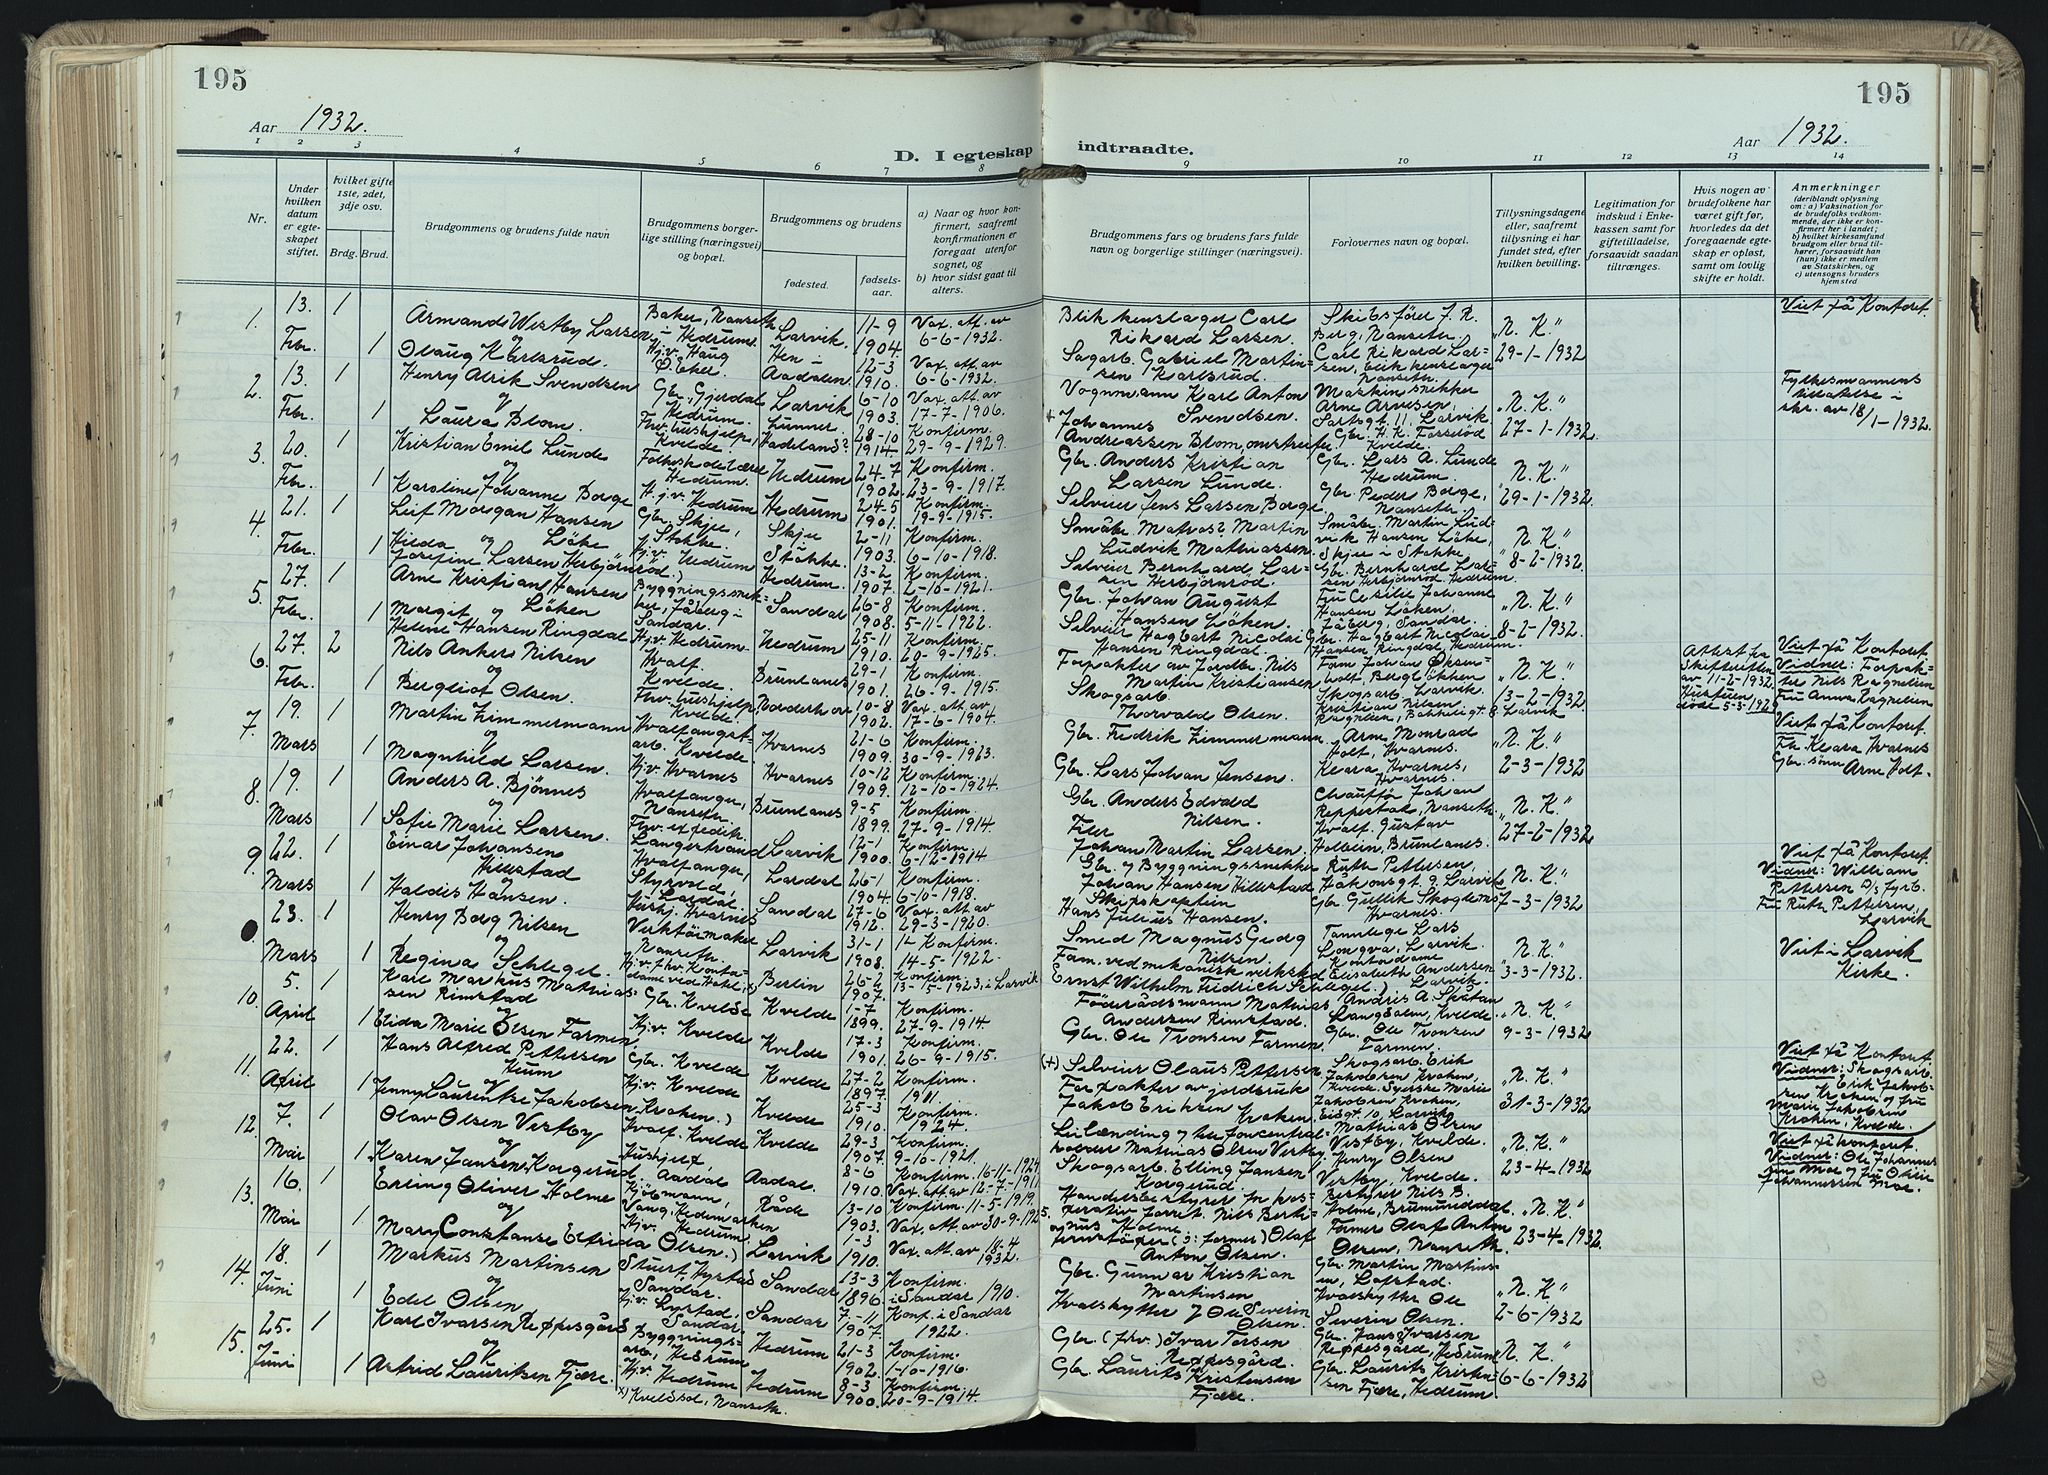 195
195
Aar 1932.
Aar 1932.
D. I egteskap indtraadte.
1 2 3 4 5 6 7 8 9 10 11 12 13 14
Nr.
Under hvilken datum er egteskapet stiftet.
hvilket gifte 1ste, 2det, 3dje osv.
Brdg. Brud.
Brudgommens og brudens fulde navn
Brudgommens borgerlige stilling (næringsvei) og bopæl.
Brudgommens og brudens
fødested.
fødselsaar.
a) Naar og hvor konfirmert, saafremt konfirmationen er foregaat utenfor sognet, og
b) hvor sidst gaat til alters.
Brudgommens fars og brudens fars fulde navn og borgerlige stillinger (næringsvei).
Forlovernes navn og bopæl.
Tillysningsdagene eller, saafremt tillysning ei har fundet sted, efter hvilken bevilling.
Legitimation for indskud i Enkekassen samt for giftetilladelse, forsaavidt saadan tiltrænges.
Hvis nogen av brudefolkene har været gift før, hvorledes da det foregaaende egteskap er opløst, samt om lovlig skifte er holdt.
Anmerkninger
(deriblandt oplysning om: a) Vaksination for de brudefolks vedkommende, der ikke er konfirmert her i landet; b) hvilket kirkesamfund brudgom eller brud tilhører, forsaavidt han (hun) ikke er medlem av Statskirken, og c) utensogns bruders hjemsted
1. 13. Febr. 1 Armand Westby Larsen Baker, Nanseth i Hedrum Larvik 11-9 1904. Vax. att. av 6-6-1932. Blikkenslager Carl Rikard Larsen. Skibsfører J. R. Berg, Nanseth "N. K." 29-1-1932 Viet på Kontoret
og
1 Olaug Karlsrud. Hj.v. Haug Ø. Eker. Hen i Aadalen 12-3 1910. Vax. att. av 6-6-1932. Sagarb. Gabriel Martinsen Karlsrud. Carl Rikard Larsen, blikkenslager Nanseth.
2. 13. Febr. 1 Henry Alrik Svendsen Gbr. Gjerdal Hedrum. Larvik 6-10 1903. Vax. att. av 17-7-1906. Vognmann Karl Anton Svendsen. Maskinsnekker Arne Arnesen, Larvik. "N. K." 27-1-1932. Fylkesmannens tillatelse i skr. av 18/1-1932.
og
1 Laura Blom. Fhv. hushjelp, Kvelde Lunner Hadeland? 28-10 1914 Konfirm. 29-9-1929. + Johannes Andreassen Blom, omstreifer Gbr. H. K. Forsetød Kvelde.
3. 20. Febr. 1 Kristian Emil Lunde Hedrum. Hedrum 24-7 1902. Konfirm. 23-9-1917. Gbr. Anders Kristian Larsen Lunde. Gbr. Lars A. Lunde Hedrum. "N. K." 29-1-1932.
og
1 Karoline Johanne Borge Hj.v. Hedrum Hedrum 24-5 1901. Konfirm. 19-9-1915. Selveier Jens Larsen Borge Gbr. Peder Borge, Nanseth.
4. 21. Febr. 1 Leif Morgan Hansen Løke Gbr. Skje, Stokke. Skje Stokke. 2-11 1903. Konfirm. 6-10-1918. Småbr. Matvas? Martin Ludvik Mathiassen. Småbr. Martin Ludvik Hansen Løke, Skje i Stokke. "N. K." 8-2-1932.
og
1 Hilda Josefine Larsen Herbjørnrød. Hj.v. Hedrum Hedrum. 13-2 1907. Konfirm. 2-10-1921. Selveier Bernhard Larsen Herbjørnrød. Gbr. Bernhard Larsen Herbjørnrød. Hedrum.
5. 27. Febr. 1 Arne Kristian Hansen Løken Byggningssnekker, Jåberg i Sandar. Sandar 26-8 1908. Konfirm. 5-11-1922. Gbr. Johan August Hansen Løken. Fru Cesilie Johanne Hansen Løken, Jåberg, Sandar. "N. K." 8-2-1932.
og
1 Margit Helene Hansen Ringdal Hj.v. Hedrum. Hedrum 25-11 1910. Konfirm. 20-9-1925. Selveier Hagbart Nicolai Hansen Ringdal. Gbr. Hagbart Nicolai Hansen Ringdal, Hedrum
6. 27. Febr. 2 Nils Anker Nilsen Hvalf. Kvelde. Brunlanes 29-1 1901. Konfirm. 26-9-1915. Forpakter av jordbr. Nils Martin Kristiansen Larvik. "N. K." 13-2-1932 Attest fra Skifteretten av 11-2-1932. Hustruen døde 5-3-192 Viet på Kontoret Vidner: Forpakter Nils Ragnelien Fru Anna Ragnelien
og
1 Bergliot Olsen. Fhv. hushjelp, Kvelde. 10-8 1902. Vax. att. av 17-6-1904. Skogsarb. Thorvald Olsen. Skogsarb. Kristian Nilsen Ragnelien, Larvik
7. 19. Mars 1 Martin Zimmermann Hvalfangstarb. Kvelde Hvarnes 21-6 1909. Konfirm. 30-9-1923. Gbr. Fredrik Zimmermann. Arne Monrad Holt, Hvarnes. "N. K." 2-3-1932 Viet på Kontoret Klara Hvarnes Gbr. sønn Arne Holt.
og
1 Magnhild Larsen. Hj.v. Hvarnes Hvarnes 10-12 1909. Konfirm. 12-10-1924. Gbr. Lars Johan Jensen. Klara Hvarnes, Hvarnes.
8. 19. Mars 1 Anders A. Bjønnes Hvalfanger, Nanseth. Brunlanes 9-5 1899. Konfirm. 27-9-1914. Gbr. Anders Edvald Nilsen. Chauffør Johan Reppertok, Nanseth. "N. K." 27-2-1932
og
1 Sofie Marie Larsen. Fhv. expedit. Langestrand Larvik 12-1 1900. Konfirm. 6-12-1914 Filer Johan Martin Larsen. Hvalf. Gustav Holbein, Brunlanes.
9. 22. Mars 1 Einar Johansen Hillestad Hvalfanger, Styrvold, Lardal. Lardal 26-1 1904. Konfirm. 6-10-1918. Gbr. og Byggningssnekker Johan Hansen Hillestad Ruth Pettersen, Håkonsgt. 9. Larvik "N. K." 7-3-1932 Viet på Kontoret. Vidner: William Pettersen Fru Ruth Pettersen, Larvik
og
1 Haldis Hansen. Hushj. Hvarnes Sandar 27-6 1912. Vax. att. av 29-3-1920. Skipskaptein Hans Julius Hansen. Gbr. Gullik Skoglund Hvarnes.
23. Mars 1 Henry Borg Nilsen Verktøimaker Nanseth. Larvik 31-1 1908. Konfirm. 14-5-1922. Smed Magnus Georg Nilsen. Tannlege Lars Longva, Larvik "N. K." 3-3-1932. Viet i Larvik Kirke.
og
1 Regina Schlegel. Hj.v. fhv. Kontordame ved Hotel, Berlin 26-2 1907. Konfirm. 13-15-1923, i Larvik Fam. ved mekanisk verksted Ernst Wilhelm Fredrich Schlegel.) Kontordame Elisabeth Andersen Larvik.
10. 5. April 1 Karl Markus Mathiassen Rimstad Gbr. Kvelde Kvelde 1-7 1899. Konfirm. 27-9-1914 Føderådsmann Mathias Andersen Rimstad. Andris A. Skatan Langsalen, Kvelde. "N. K." 9-3-1932
og
1 Elida Marie Olsen Farmen. Hj.v. Kvelde Kvelde 17-3 1901. Konfirm. 26-9-1915. Gbr. Ole Tronsen Farmen. Gbr. Ole Tronsen Farmen.
11. 22. April 1 Hans Alfred Pettersen Heum Gbr. Kvelde Kvelde 27-2 1897. Konfirm. 1911 (+) Selveier Olaus Pettersen Skogsarb. Erik Jakobsen Kraken, Kvelde. "N. K." 31-3-1932 Viet på Kontoret Vidner: Skogsarb. Erik Jakobsen Kraken og fru Marie Jakobsen Kraken, Kvelde.
og
1 Jenny Laurentze Jakobsen Kraken.) Hj.v. Kvelde Kvelde 25-3 1910. Konfirm. 1924 Forpakter av jordbruk Jakob Eriksen Kraken Syerske Marie Jakobsen Kraken, Larvik
12. 7. Mai 1 Olav Olsen Vestby Hvalf. Kvelde Kvelde 29-3 1907. Konfirm. 9-10-1921. Mathias Olsen Vestby Mathias Olsen Vestby, Kvelde. "N. K." 23-4-1932 Viet på Kontoret. Vidner: Ole Johannessen Moe og fru Johannessen Moe.
og
1 Karen Jansen Korgerud Hushjelp, Aadal Aadal. 8-6 1910. Konfirm. 16-11-1924 Vax. att. av 12-7-1911 Skogsarb. Elling Jansen Korgerud. Henry Olsen Vestby, Kvelde.
13. 16. Mai 1 Erling Oliver Holme Kjøbmann, Vang, Hedemarken Råde 13-10 1903. Konfirm. 11-5-1919. Vax. att. av 30-9-1925. Nils Bertinus Holme. Bestyrer Nils B. Holme, Brumunddal "N. K." 23-4-1932.
og
1 Mary Constanse Elfrida Olsen.) Hj.v. Hedrum Larvik 1-3 1910. Vax. att. av 18-4 1932. (ɔ: former) Olaf Anton Olsen. Former Olaf Anton Olsen, Nanseth.
14. 18. Juni 1 Markus Martinsen Sandar. Sandar 13-3 1896 Konfirm. i Sandar 1910. Gbr. Gunnar Kristian Martinsen Gbr. Martin Martinsen, Lofstad. "N. K." 2-6-1932
og
1 Edel Olsen Hj.v. Sandar. Sandar 7-11 1907. Konf. i Sandar 1922. Hvalskytter Ole Severin Olsen. Hvalskytter Ole Severin Olsen.
15. 25. Juni 1 Karl Ivarsen Reppesgård Byggningsarb., Hedrum Hedrum 21-3 1902. Konfirm. 1-10-1916. Gbr. (fhv.) Ivar Torsen Reppesgård. Gbr. Hans Ivarsen Reppesgård, Hedrum "N. K." 6-6-1932
og
1 Astrid Lauritsen Fjære. Hj.v. Hedrum Hedrum 8-3 1900. Konfirm. 20-9-1914. Gbr. Laurits Kristensen Fjære. Gbr. Laurits Kristensen Fjære, Hedrum
x) Kveldsol, Nanseth.